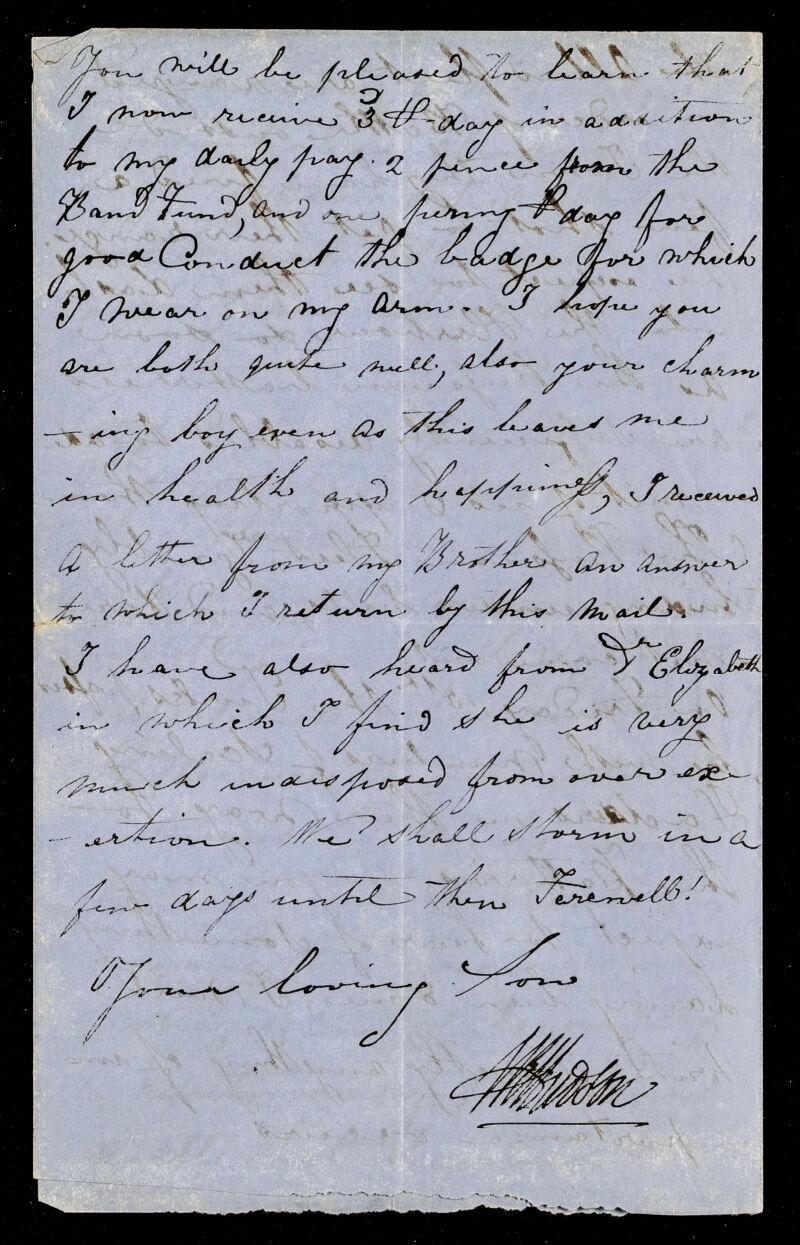 You will be pleased to learn that
I now receive 3d ⅌ day in addition
to my daily pay. 2 pence from the
Band Fund, and one penny ⅌ day for
good Conduct the badge for which
I wear on my arm. I hope you
are both quite well, also your charm
-ing boy even as this leaves me
in health and happiness, I received
a letter from my Brother an answer
to which I return by this Mail.
I have also heard from Dr Elizabeth
in which I find she is very
much indisposed from over ex
-ertion. We shall storm in a
few days until then Farewell!
Your loving Son
Hudson